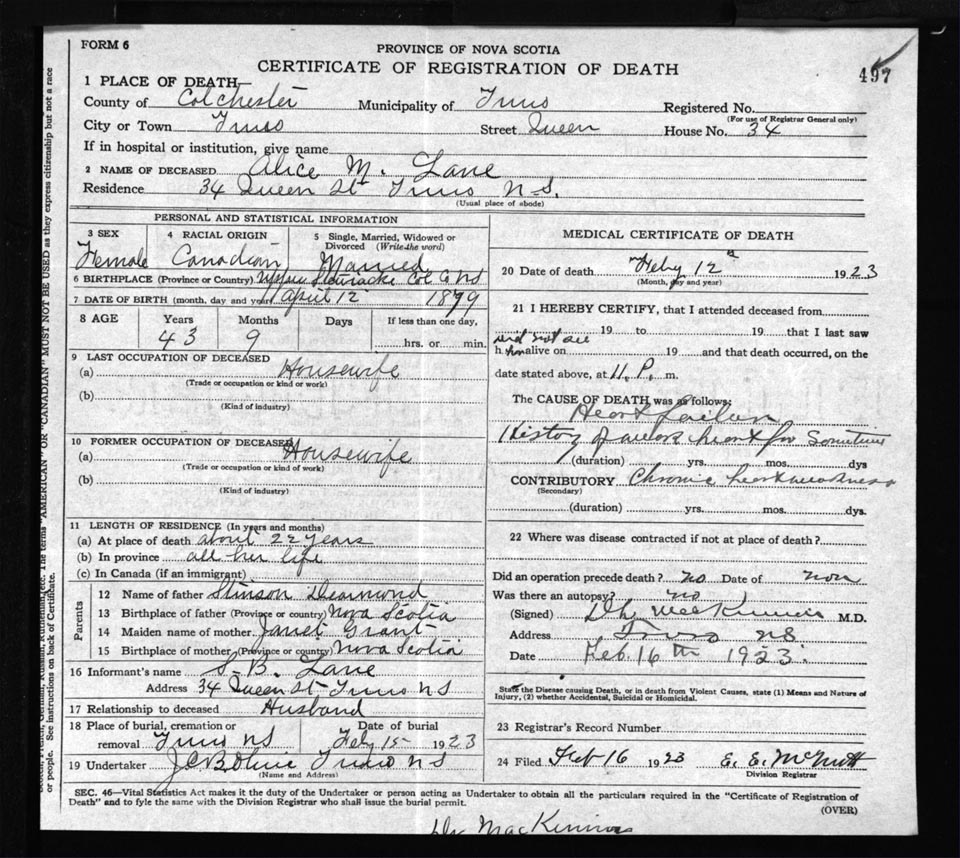 FORM 6
PROVINCE OF NOVA SCOTIA
CERTIFICATE OF REGISTRATION OF DEATH
497
1 PLACE OF DEATH—
County of Colchester Municipality of Truro Registered No.
(For use of Registrar General only)
City or Town Truro Street Queen House No. 34
If in hospital or institution, give name
2 NAME OF DECEASED Alice M. Lane
Residence 34 Queen St Truro N.S.
(Usual place of abode)
PERSONAL AND STATISTICAL INFORMATION
3 SEX 4 RACIAL ORIGIN 5 Single, Married, Widowed or Divorced (Write the word)
Female Canadian Married
6 BIRTHPLACE (Province or Country) Upper Col Co NS
7 DATE OF BIRTH (month, day and year) April 12 1879
8 AGE Years Months Days If less than one day,
43 9 hrs. or min.
9 LAST OCCUPATION OF DECEASED
(a) Housewife
(Trade or occupation or kind or work)
(b)
(Kind of industry)
10 FORMER OCCUPATION OF DECEASED
(a) Housewife
(Trade or occupation or kind of work)
(b)
(Kind of industry)
11 LENGTH OF RESIDENCE (In years and months)
(a) At place of death about 22 years
(b) In province all her life
(c) In Canada (if an immigrant)
Parents
12 Name of father Stinson
13 Birthplace of father (Province or country) Nova Scotia
14 Maiden name of mother Janet Grant
15 Birthplace of mother (Province or country) Nova Scotia
16 Informant's name S. B. Lane
Address 34 Queen St Truro NS
17 Relationship to deceased Husband
18 Place of burial, cremation or removal Truro NS Date of burial Feby 15 1923
19 Undertaker Truro NS
(Name and Address)
MEDICAL CERTIFICATE OF DEATH
20 Date of death Feby 12th 1923
(Month, day and year)
21 I HEREBY CERTIFY, that I attended deceased from
19 to 19 that I last saw
did not see
h alive on 19 and that death occurred, on the
date stated above, at 11. P. m.
The CAUSE OF DEATH was as follows:
Heart failure
History of weak heart for sometime
(duration) yrs. mos. dys
CONTRIBUTORY Chronic heart weakness
(Secondary)
(duration) yrs. mos. dys.
22 Where was disease contracted if not at place of death?
Did an operation precede death? no Date of non
Was there an autopsy? no
(Signed) MacKinnon M.D.
Address Truro NS
Date Feb. 16th 1923
State the Disease causing Death, or in death from Violent Causes, state (1) Means and Nature of
Injury, (2) whether Accidental, Suicidal or Homicidal.
23 Registrar's Record Number
24 Filed Feb 16 1923 E. E. McNutt
Division Registrar
SEC. 46—Vital Statistics Act makes it the duty of the Undertaker or person acting as Undertaker to obtain all the particulars required in the "Certificate of Registration of
Death" and to fyle the same with the Division Registrar who shall issue the burial permit.
(OVER)
Dr MacKinnon
etc. The terms "AMERICAN" OR "CANADIAN" MUST NOT BE USED as they express citizenship but not a race
or people. See instructions on back of Certificate.